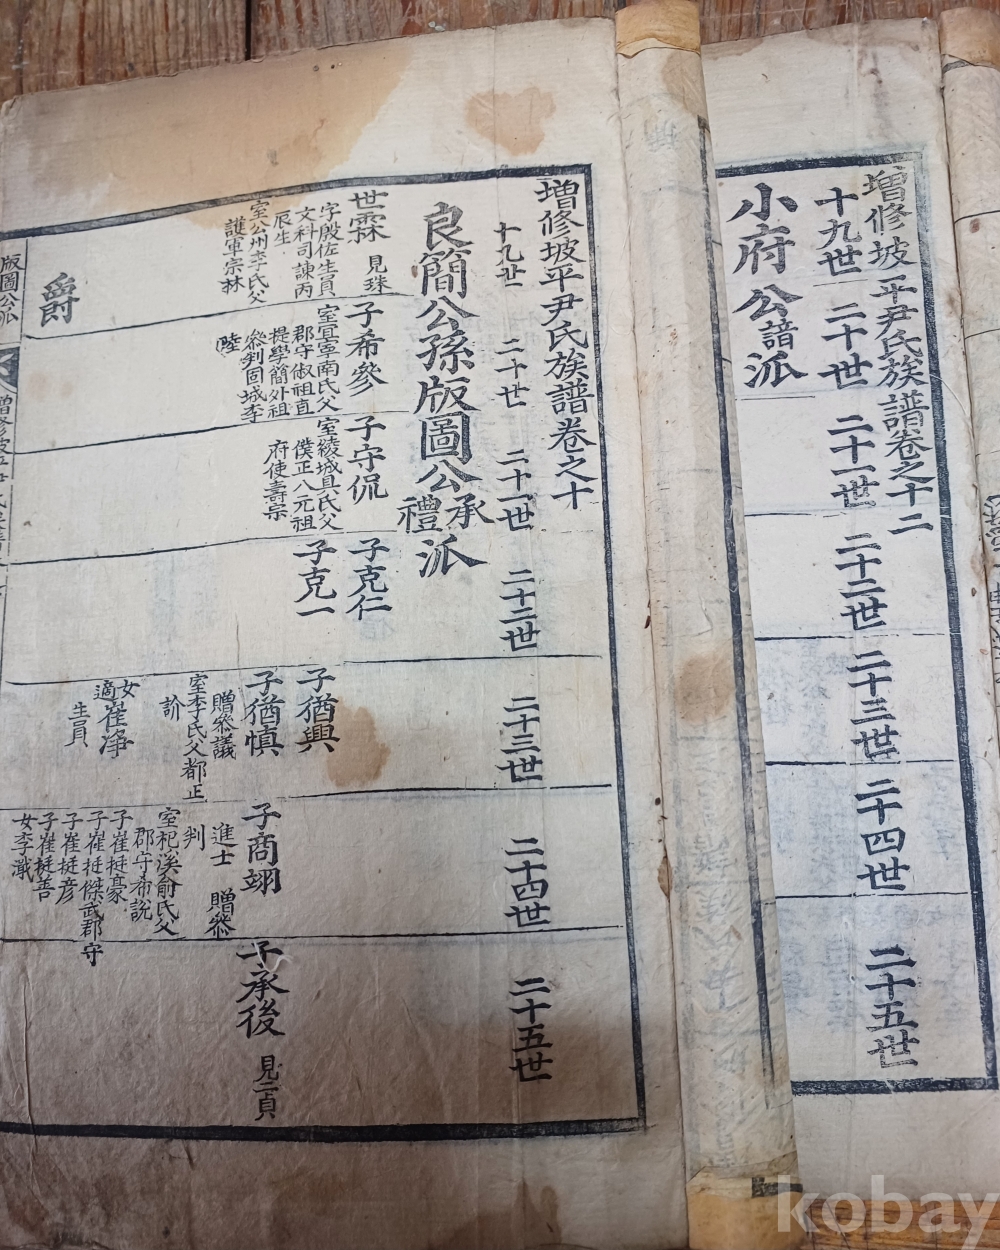 增修坡平尹氏族譜卷之十二
十九世 二十世 二十一世 二十二世 二十三世 二十四世 二十五世
小府公譜派
增修坡平尹氏族譜卷之十
十九世 二十世 二十一世 二十二世 二十三世 二十四世 二十五世
良簡公孫版圖公承禮派
世霖 見珠
字殷佐生員
文科司諫丙
辰生
室公州李氏父
護軍宗林
爵
子希參
室宜寧南氏父
郡守俶祖直
提學簡外祖
參判固城李
陸
子守侃
室綾城具氏父
僕正八元祖
府使壽宗
子克仁
子克一
子猶興
子猶慎
贈參議
室李氏父都正
訢
女崔淨
適
生員
子商翊
進士 贈參
判
室杞溪俞氏父
郡守希說
子崔挺豪
子崔挺傑武郡守
子崔挺彦
子崔挺善
女李濈
子承後
見二頁
版圖公派
kobay